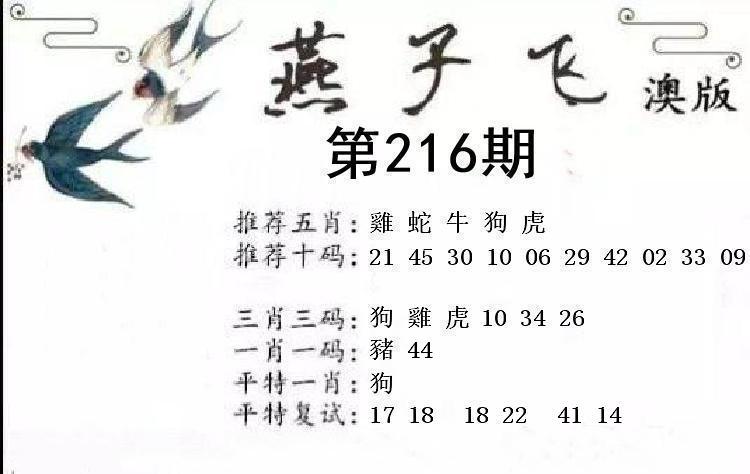 燕子飞 澳版
第216期
推荐五肖: 雞 蛇 牛 狗 虎
推荐十码: 21 45 30 10 06 29 42 02 33 09
三肖三码: 狗 雞 虎 10 34 26
一肖一码: 豬 44
平特一肖: 狗
平特复试: 17 18 18 22 41 14